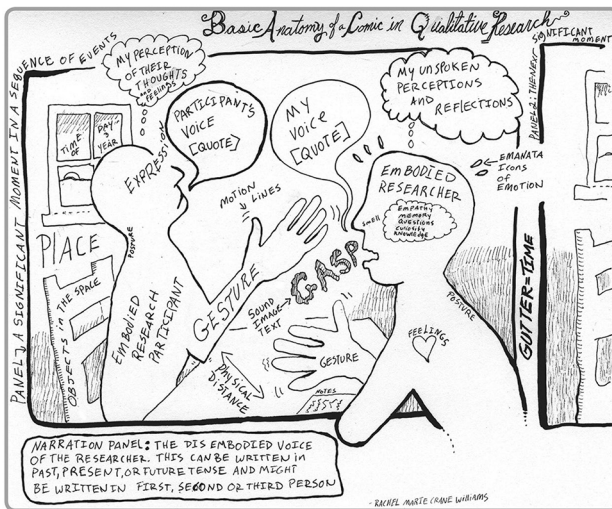 Basic Anatomy of a Comic in Qualitative Research
PANEL 1, A SIGNIFICANT MOMENT IN A SEQUENCE OF EVENTS
MY PERCEPTION
OF THEIR
THOUGHTS
AND
FEELINGS
PARTICIPANT'S
VOICE
[QUOTE]
MY
VOICE
[QUOTE]
MY UNSPOKEN
PERCEPTIONS
AND
REFLECTIONS
PANEL 2: THE NEXT
SIGNIFICANT
MOMENT
TIME OF
DAY &
YEAR
EXPRESSION
MOTION
LINES
EMBODIED
RESEARCHER
EMANATA
ICONS
OF
EMOTION
SMELL
EMPATHY
MEMORY
QUESTIONS
CURIOSITY
KNOWLEDGE
PLACE
POSTURE
OBJECTS in THE SPACE
EMBODIED
RESEARCH
PARTICIPANT
GESTURE
GASP
SOUND
IMAGE
TEXT
POSTURE
GUTTER=TIME
FEELINGS
GESTURE
PHYSICAL
DISTANCE
NOTES
NARRATION PANEL: THE DISEMBODIED VOICE
OF THE RESEARCHER. THIS CAN BE WRITTEN in
PAST, PRESENT, OR FUTURE TENSE AND MIGHT
BE WRITTEN IN FIRST, SECOND OR THIRD PERSON
-RACHEL MARIE CRANE WILLIAMS